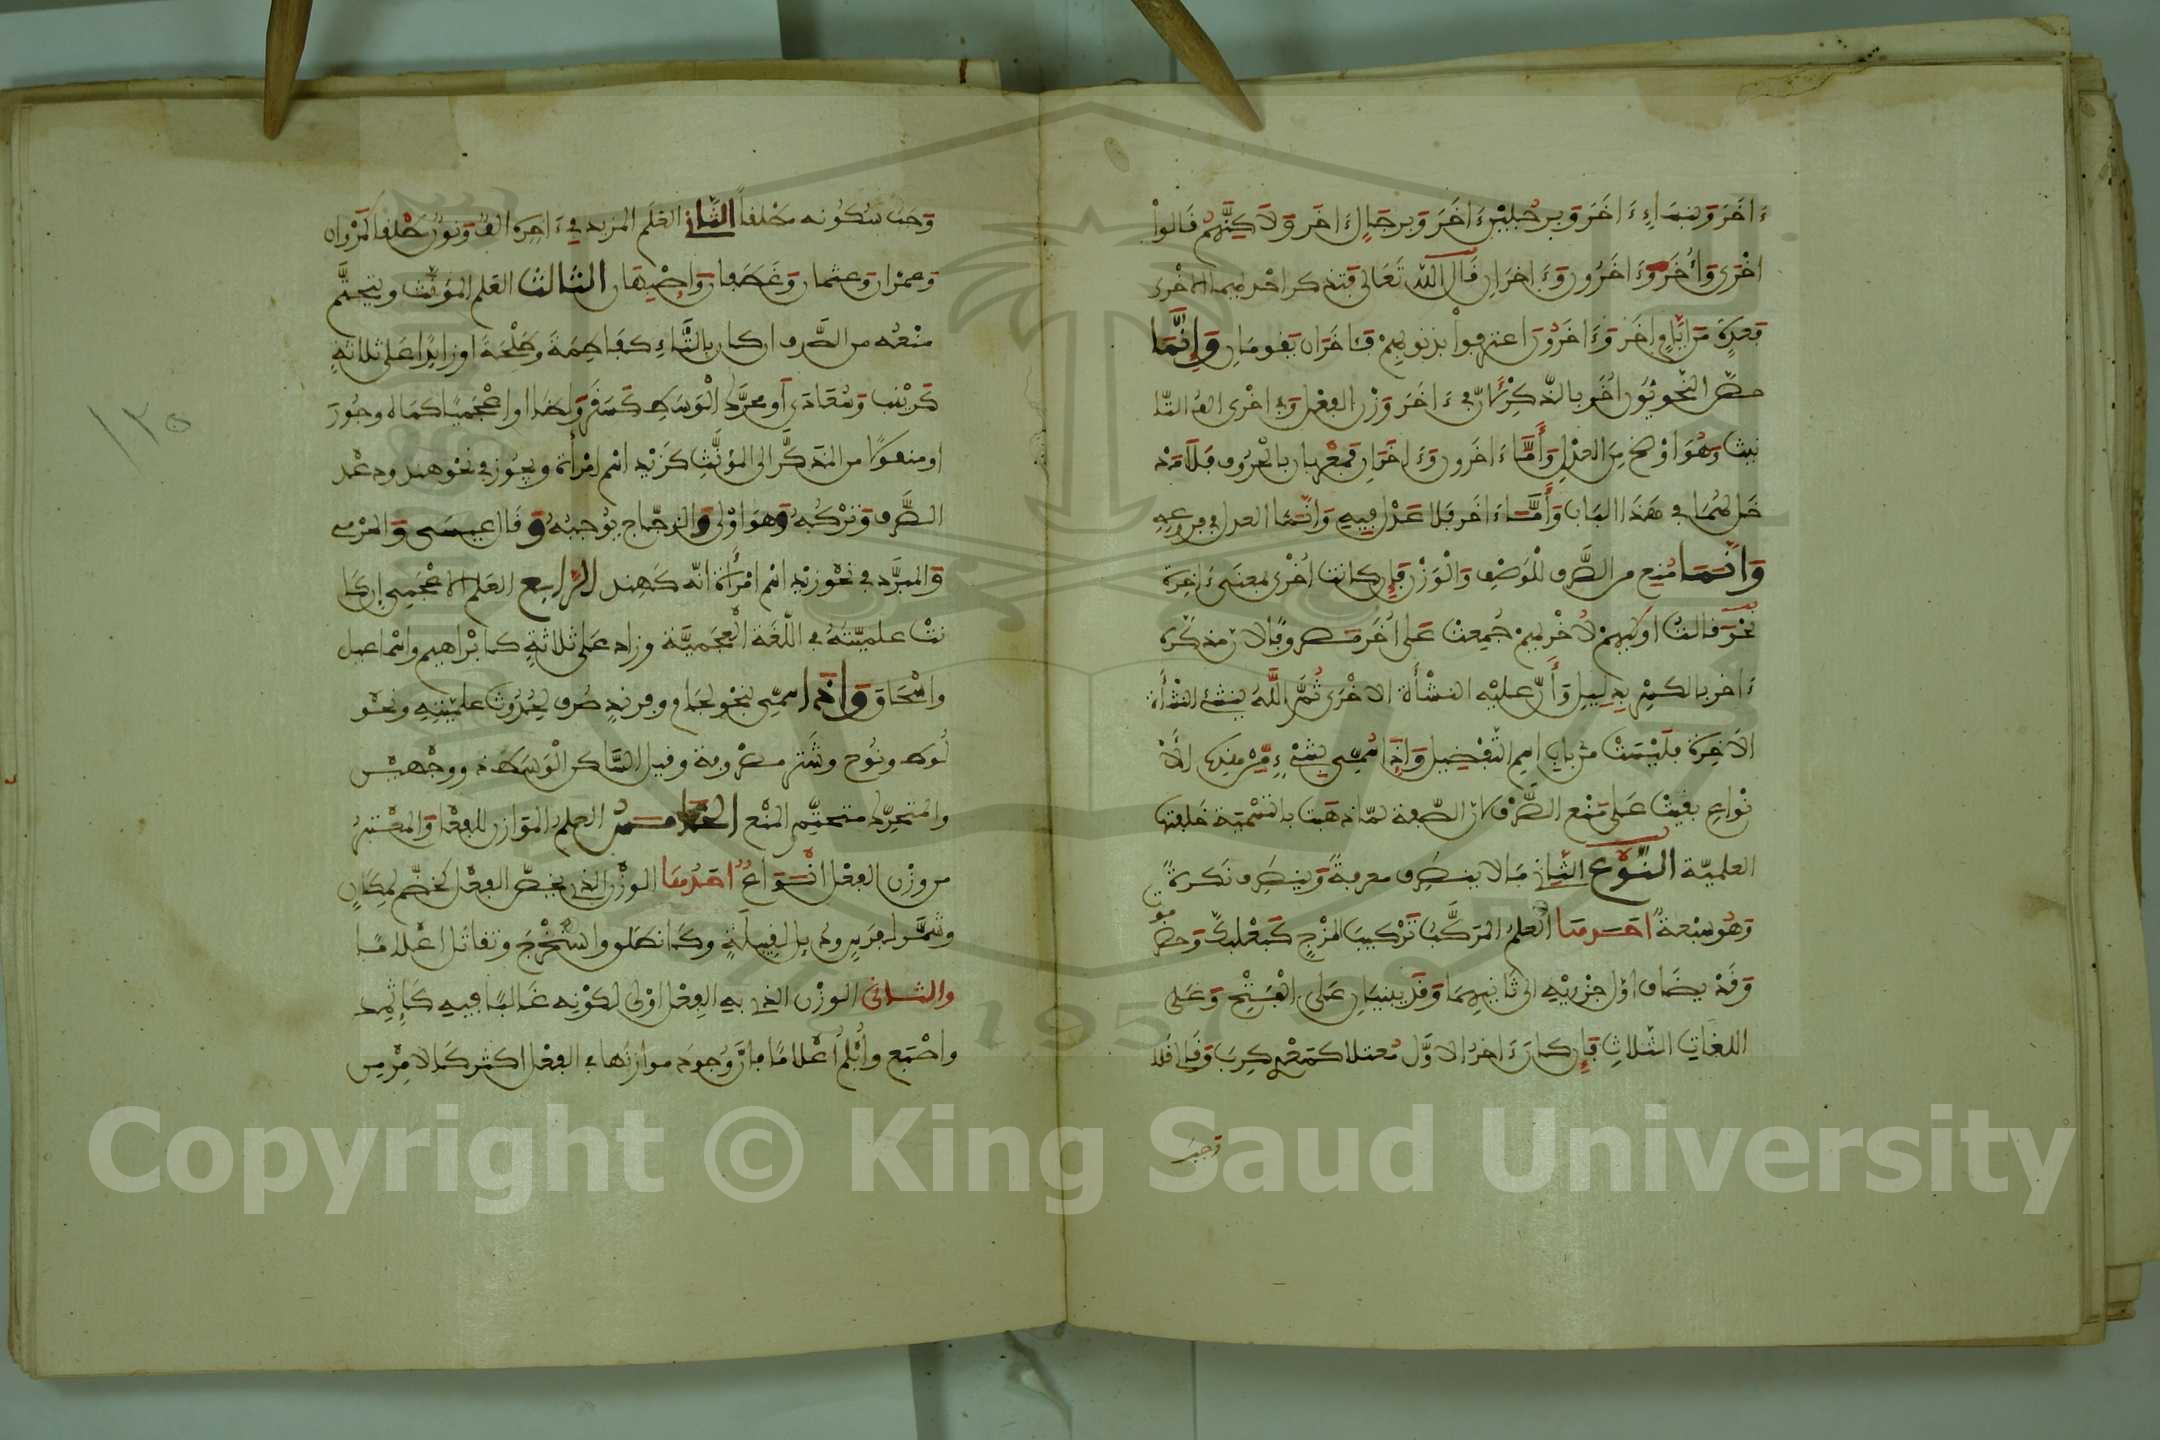 ءاخَرَ وَبنسَاءٍ ءاخَرَ وَبرجُلَيْنِ ءَاخَرَ وَبرجَالٍ ءَاخَر وَلَاكِنَّهُمْ قَالُواْ
اخْرَى وَأُخَرَ وَءَاخَرُون وَءَاخَرَانِ قَالَ اللّٰه تَعَالَى فَتذكر احْديهما الاخْرَى
فَعِدَّةٌ مِّنَ ايَّامٍ اخَر وَءَاخَرُونَ اعترفواْ بذنوبهِمْ فَـَٔاخَرَان يَقومَانِ وَإِنَّمَا
خصَّ النّحويُّون اُخَر بالذِّكْرِ لأنّ في ءَاخَر وَزْن الفِعْل وَفي اخْرى الف التأ
نيث وَهُوَ اوْضح مِنَ العدْلِ وَأَمَّا ءَاخَرون وَءَاخَرَانِ فمعْربان بالحْرُوف فَلَا مَدْ
خَل لهُمَا في هَذَا البَاب وَأَمَّا ءَاخَر فَلا عَدْل فِيهِ وَانَّمَا العدل في فروعه
وَانَّمَا مُنِع من الصَّرف للْوَصْف وَالْوَزْن فَإِن كانت اُخْرى بمعنَى ءَاخِرَة
نحْوَ قَالت اوليهمْ لأُخْريهمْ جُمِعتْ عَلَى اُخَر مَصروفًا لأن مذكّرَه
ءَاخِر بالكسْر بِدَلِيل وَأَنَّ عليْه النشْأَة الاخْرَى ثُمَّ اللَّهُ ينشئ النشْأة
الآخِرَة فليْسَتْ مِنْ بَاب اسم التّفضِيل وَإِذَا سُمِّيَ بشَيْءٍ مِّنْ هذِه الأَنْـ
ـوَاع بقِيَ عَلى مَنْع الصَّرْف لأنّ الصّفة لمّا ذهَبت بالتّسْمِيَة خَلفتها
العلميّة النّوْع الثّاني مَا لا ينصَرِف معرِفَةً وَينصَرِف نَكرَةً
وَهُوَ سَبْعة احَدهَا العلم المركَّبُ تَرْكيبَ المزْج كَبَعْلَبَكَّ وَحضرموت
وَقَدْ يضَاف اوّل جزءَيْهِ الى ثَانيهِمَا وَقَدْ يبنيَانِ عَلَى الْفَتْح وَعَلى
اللغَات الثّلاث فَإِن كان ءَاخرُ الاوَّل مُعتلا كمَعْدِي كرِبَ وَقَالِي قَلا
وَجبَ
وَجَبَ سُكُونه مطْلقاً الثّاني العَلَم المزيد في ءَاخِرِهِ الف وَنُونٌ مُطْلَقًا كَمَرْوَان
وَعمران وَعثمان وَغَطَفان وَإِصْبِهَان الثالث العَلَم المؤَنَّث ويتحتَّم
منْعُه من الصَّرف ان كان بالتَّاءِ كفَاطِمَةَ وَطَلْحَةَ او زائدًا عَلى ثلاثةٍ
كَزيْنَبَ وَسُعَادَ أو محرَّك الْوَسَط كَسَقَرَ وَلَظَى او اعْجَميًّا كمَاه وجُورَ
او منقولًا من المذكَّر الى المؤنَّث كزَيْدٍ اسْم امْرأَة ويجوز في نحْو هنْد ودعْد
الصَّرف وَتَرْكُهُ وَهوَ اوْلى وَالزّجّاج يوُجبُهُ وَقَال عيسَى وَالجَرْمي
وَالمبرَّد في نحْو زيْدٍ اسْم امْرأَة انّه كَهِنْد الرَّابِع العَلم الاعْجَمِي إن كا
نتْ علميّتُهُ في اللّغَة الْعَجَمِيَّة وَزاد عَلَى ثَلاثةٍ كابْراهيم واسْماعيل
وإسْحَاق وَإِذَا سمِّيَ بنحْو لجَام وَفِرنْدٍ صُرف لِحُدُوث علميّتِهِ ونحْو
لُوط ونُوح وشَتَر مصْروفة وقيل السّاكن الْوَسَط ذو وجْهيْن
والمتحرّك متحتّم المنْع الخَامِسُ العلم الموَازن للفِعْل وَالمعْتَبَرُ
من وزْن الفعْل انْوَاع احَدُهَا الوزْن الذي يخصّ الفعْل كخَضَّم لمكان
وشمَّر لفرَسٍ ودُئِل لقبِيلَةٍ وكانطَلق واسْتَخْرَجَ وتقَاتل اعْلامًا
والثّانى الوزْن الذي به الفِعْل اوْلى لكوْنه غَالبًا فيهِ كَإِثْمِد
واصْبَع وأُبْلُم أعْلامًا فإنّ وُجود موازنها في الفعْل اكثر كالامْر من
١٣٥
Copyright © King Saud University
1957